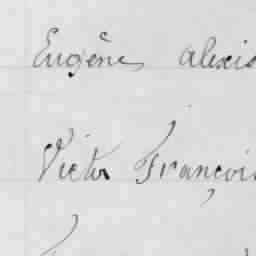 Eugène alexis
Victor François